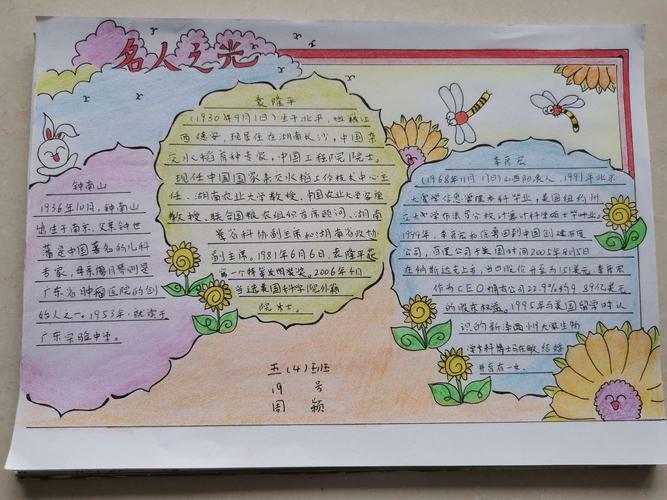 名人之光
钟南山
1936年10月，钟南山
出生于南京，父亲钟世
藩是中国著名的儿科
专家，母亲廖月琴则是
广东省肿瘤医院的创
始人之一。1953年，就读于
广东实验中学。
袁隆平
（1930年9月1日）生于北平，祖籍江
西德安，现居住在湖南长沙，中国杂
交水稻育种专家，中国工程院院士。
现任中国国家杂交水稻工作技术中心主
任，湖南农业大学教授，中国农业大学客座
教授，联合国粮农组织首席顾问，湖南
省科协副主席和湖南省政协
副主席。1981年6月6日，袁隆平获
第一个特等发明奖。2006年4月
当选美国科学院外籍
院士。
李彦宏
（1968年11月17日）山西阳泉人，1991年北京
大学信息管理本科毕业，美国纽约州
立大学布法罗分校计算计科学硕士毕业。
1999年，李彦宏和徐勇回到中国创建百度
公司，百度公司于美国时间2005年8月5日
在纳斯达克上市，当日股价升至为151美元，李彦宏
作为CEO拥有公司22.9%约9.89亿美元
的股东权益。1995年与美国留学时认
识的新泽西州大学生物
学专科博士马东敏结婚
并育有一女。
五（4）班
19号
周颖